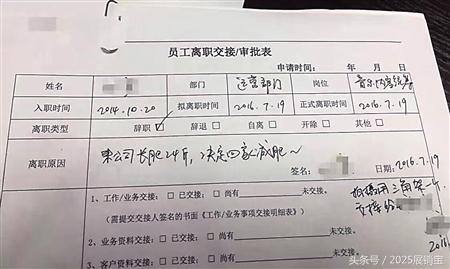 员工离职交接/审批表
申请时间： 年 月 日
姓名 部门 运营部门 岗位
入职时间 2014.10.20 拟离职时间 2016.7.19 正式离职时间 2016.7.19
离职类型 辞职☑ 辞退□ 自离□ 开除□ 其他□
离职原因 来公司长肥24斤，决定回家减肥～
签名： 日期：2016.7.19
1、工作/业务交接：□已交接；□尚有 未交接。
（需提交交接人签名的书面《工作/业务事项交接明细表》）
2、业务资料交接：□已交接；□尚有 未交接。
3、客户资料交接：□已交接；□尚有 未交接。
交接给
2016
头条号 / 2025展销宝